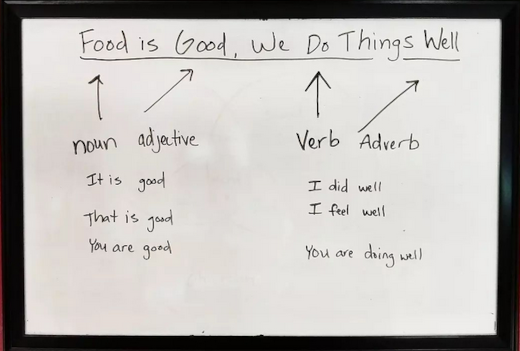 Food is Good, We Do Things Well
noun adjective
Verb Adverb
It is good
That is good
You are good
I did well
I feel well
You are doing well